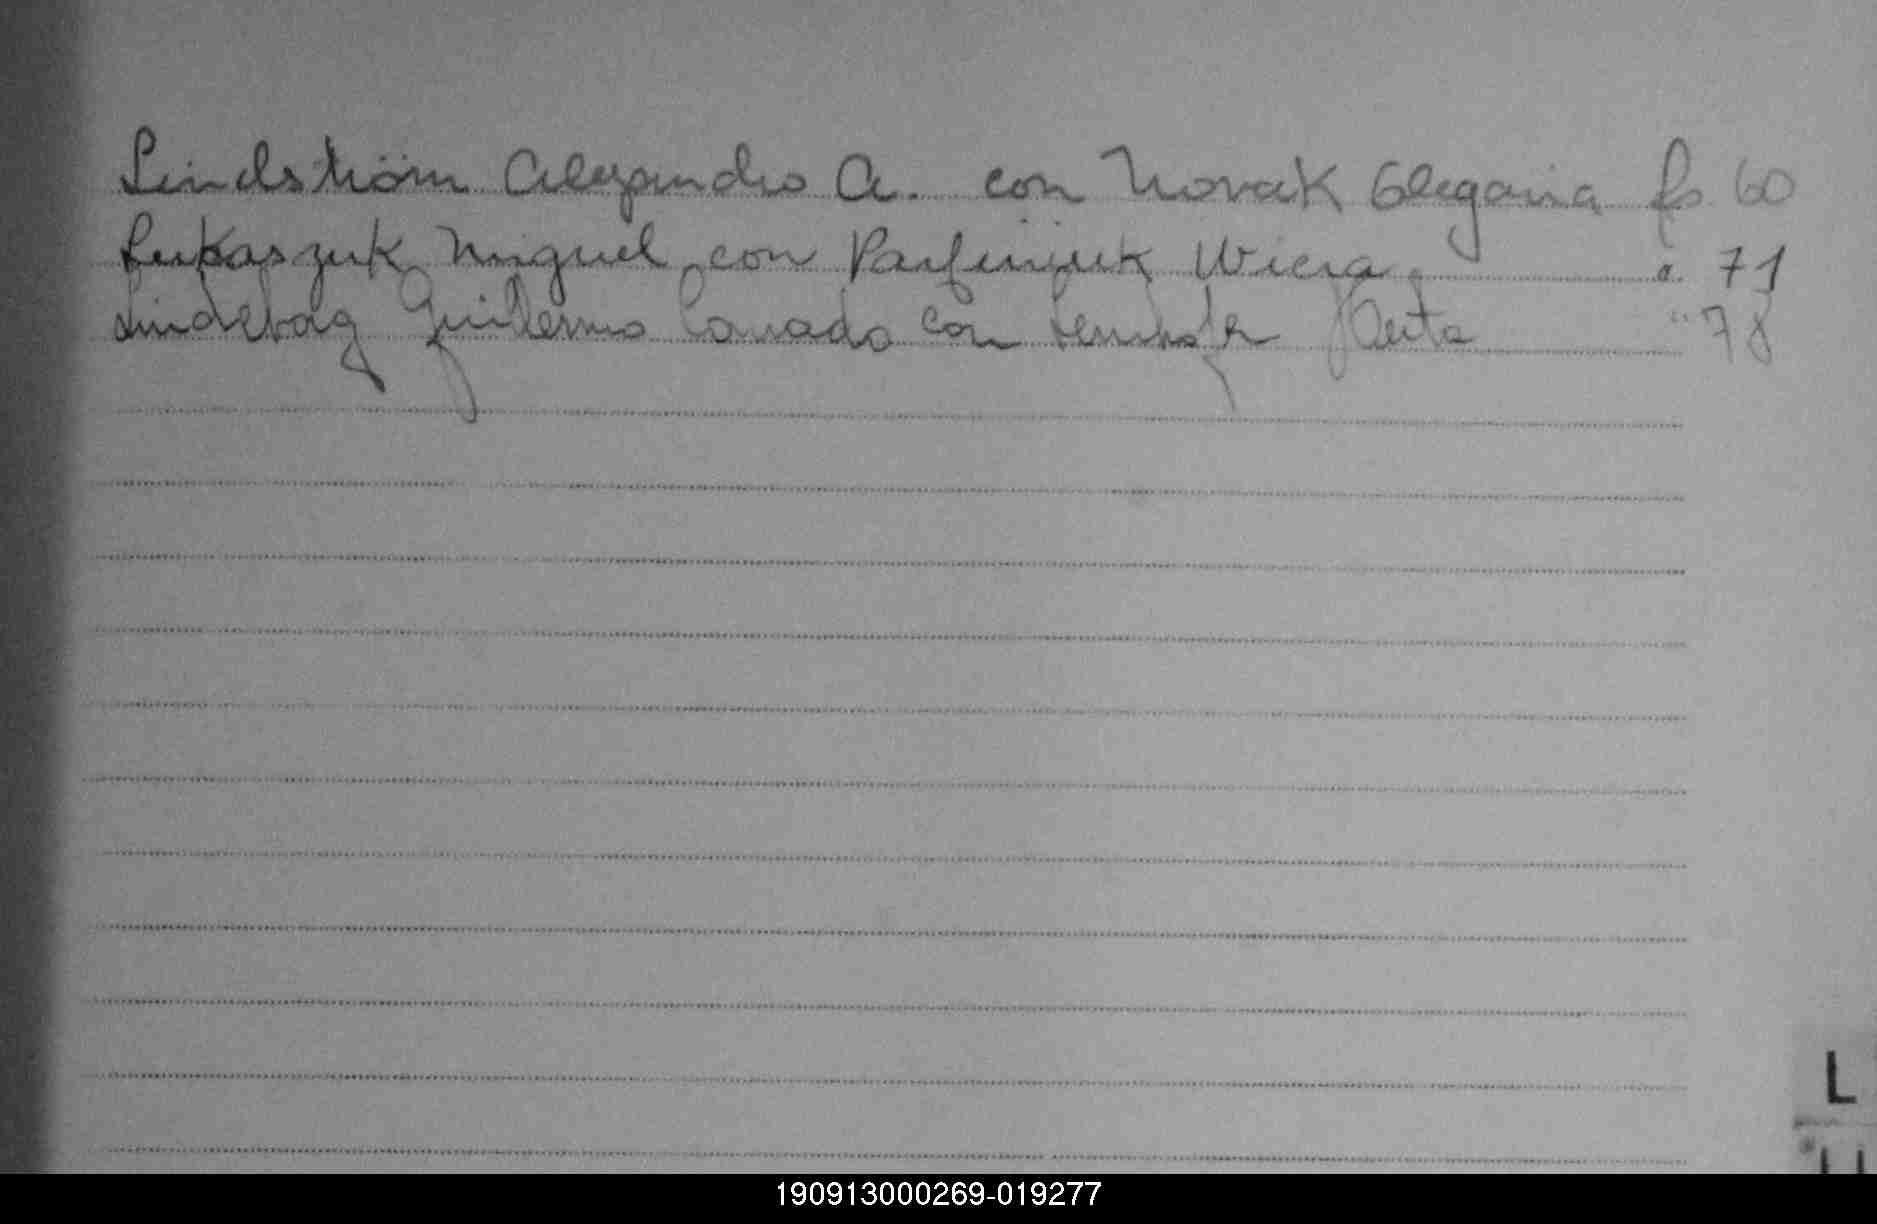 Lindström Alejandro A. con Novak Olegaria fs. 60
Lukaszuk Miguel con Parfeniuk Wiera " 71
Guillermo Conrado con " 78
L
190913000269-019277